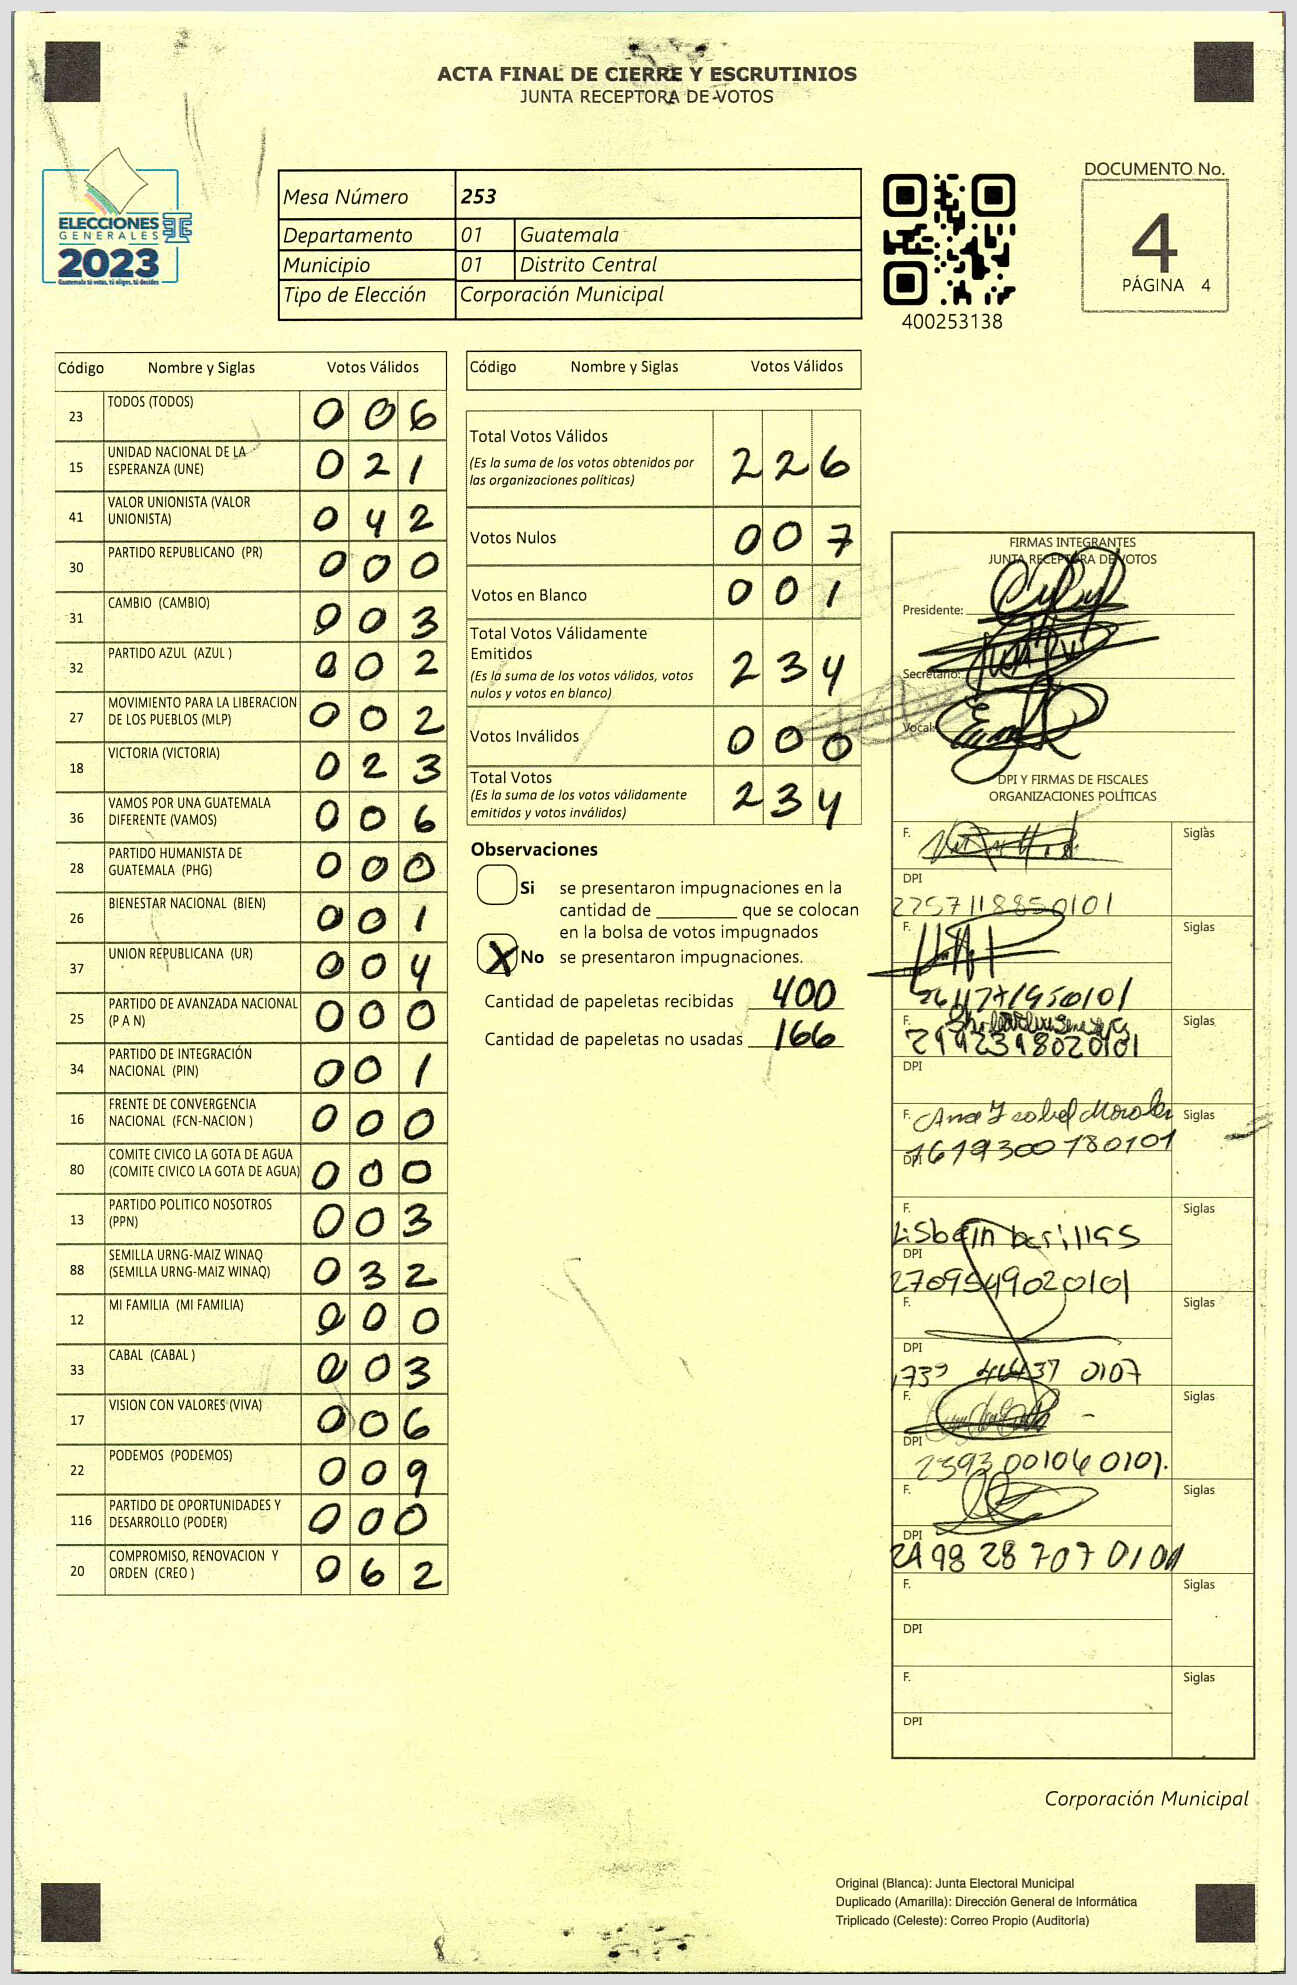 ACTA FINAL DE CIERRE Y ESCRUTINIOS
JUNTA RECEPTORA DE VOTOS
ELECCIONES
GENERALES
2023
Guatemala tú votas, tú eliges, tú decides
Mesa Número 253
Departamento 01 Guatemala
Municipio 01 Distrito Central
Tipo de Elección Corporación Municipal
400253138
DOCUMENTO No.
4
PÁGINA 4
Código Nombre y Siglas Votos Válidos
23 TODOS (TODOS) 0 0 6
15 UNIDAD NACIONAL DE LA
ESPERANZA (UNE) 0 2 1
41 VALOR UNIONISTA (VALOR
UNIONISTA) 0 4 2
30 PARTIDO REPUBLICANO (PR) 0 0 0
31 CAMBIO (CAMBIO) 0 0 3
32 PARTIDO AZUL (AZUL ) 0 0 2
27 MOVIMIENTO PARA LA LIBERACION
DE LOS PUEBLOS (MLP) 0 0 2
18 VICTORIA (VICTORIA) 0 2 3
36 VAMOS POR UNA GUATEMALA
DIFERENTE (VAMOS) 0 0 6
28 PARTIDO HUMANISTA DE
GUATEMALA (PHG) 0 0 0
26 BIENESTAR NACIONAL (BIEN) 0 0 1
37 UNION REPUBLICANA (UR) 0 0 4
25 PARTIDO DE AVANZADA NACIONAL
(P A N) 0 0 0
34 PARTIDO DE INTEGRACIÓN
NACIONAL (PIN) 0 0 1
16 FRENTE DE CONVERGENCIA
NACIONAL (FCN-NACION ) 0 0 0
80 COMITE CIVICO LA GOTA DE AGUA
(COMITE CIVICO LA GOTA DE AGUA) 0 0 0
13 PARTIDO POLITICO NOSOTROS
(PPN) 0 0 3
88 SEMILLA URNG-MAIZ WINAQ
(SEMILLA URNG-MAIZ WINAQ) 0 3 2
12 MI FAMILIA (MI FAMILIA) 0 0 0
33 CABAL (CABAL ) 0 0 3
17 VISION CON VALORES (VIVA) 0 0 6
22 PODEMOS (PODEMOS) 0 0 9
116 PARTIDO DE OPORTUNIDADES Y
DESARROLLO (PODER) 0 0 0
20 COMPROMISO, RENOVACION Y
ORDEN (CREO ) 0 6 2
Código Nombre y Siglas Votos Válidos
Total Votos Válidos
(Es la suma de los votos obtenidos por
las organizaciones políticas) 2 2 6
Votos Nulos 0 0 7
Votos en Blanco 0 0 1
Total Votos Válidamente
Emitidos
(Es la suma de los votos válidos, votos
nulos y votos en blanco) 2 3 4
Votos Inválidos 0 0 0
Total Votos
(Es la suma de los votos válidamente
emitidos y votos inválidos) 2 3 4
Observaciones
Si se presentaron impugnaciones en la
cantidad de ________ que se colocan
en la bolsa de votos impugnados
X No se presentaron impugnaciones.
Cantidad de papeletas recibidas 400
Cantidad de papeletas no usadas 166
FIRMAS INTEGRANTES
JUNTA RECEPTORA DE VOTOS
Presidente:
Secretario:
Vocal:
DPI Y FIRMAS DE FISCALES
ORGANIZACIONES POLÍTICAS
F. Siglas
DPI
2257118850101
F. Siglas
F. Siglas
2992398020101
DPI
F. Ana Isabel Morales Siglas
DPI 1619300180101
F. Siglas
Lisbein barillas
DPI
2709549020101
F. Siglas
DPI
F. Siglas
DPI
2393001060101.
F. Siglas
DPI
F. Siglas
DPI
F. Siglas
DPI
Corporación Municipal
Original (Blanca): Junta Electoral Municipal
Duplicado (Amarilla): Dirección General de Informática
Triplicado (Celeste): Correo Propio (Auditoría)